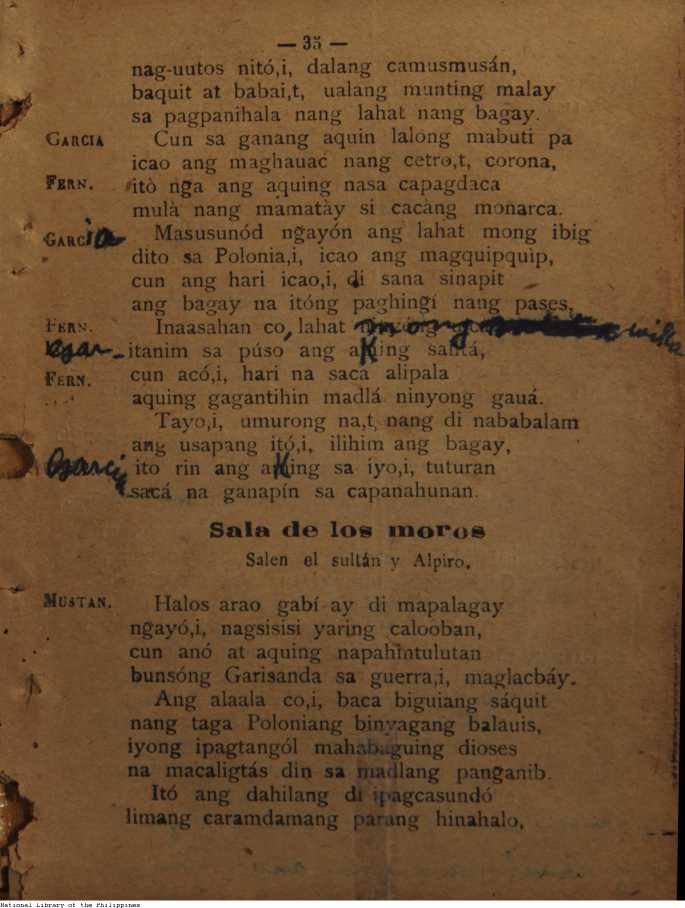 — 35 —
nag-uutos nitó,i, dalang camusmusán,
baquit at babai,t, ualang munting malay
sa pagpanihala nang lahat nang bagay.
GARCIA Cun sa ganang aquin lalong mabuti pa
icao ang maghauac nang cetro,t, corona,
FERN. itò nga ang aquing nasa capagdaca
mulà nang mamatày si cacàng monarca.
GARCia Masusunód ngayón ang lahat mong ibig
dito sa Polonia,i, icao ang magquipquip,
cun ang hari icao,i, di sana sinapit
ang bagay na itóng paghingí nang pases,
FERN. Inaasahan co, lahat mong wika
itanim sa púso ang aKing santá,
FERN. cun acó,i, hari na saca alipala
aquing gagantihin madlá ninyong gauá.
Tayo,i, umurong na,t, nang di nababalam
ang usapang itó,i, ilihim ang bagay,
Garcia ito rin ang aKing sa iyo,i, tuturan
sacá na ganapín sa capanahunan.
Sala de los moros
Salen el sultán y Alpiro.
MUSTAN. Halos arao gabí ay di mapalagay
ngayó,i, nagsisisi yaring calooban,
cun anó at aquing napahintulutan
bunsóng Garisanda sa guerra,i, maglacbáy.
Ang alaala co,i, baca biguiang sáquit
nang taga Poloniang binyagang balauis,
iyong ipagtangól mahabaguing dioses
na macaligtás din sa madlang panganib.
Itó ang dahilang di ipagcasundó
limang caramdamang parang hinahalo,
National Library of the Philippines